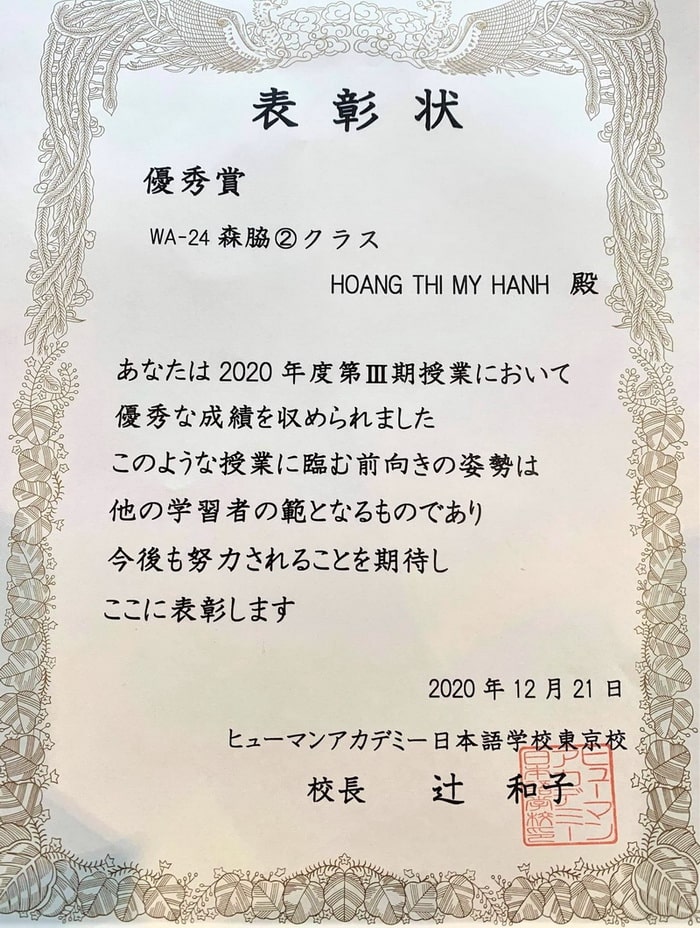 表彰状
優秀賞
WA-24 森脇②クラス
HOANG THI MY HANH 殿
あなたは 2020 年度第Ⅲ期授業において
優秀な成績を収められました
このような授業に臨む前向きの姿勢は
他の学習者の範となるものであり
今後も努力されることを期待し
ここに表彰します
2020 年 12 月 21 日
ヒューマンアカデミー日本語学校東京校
校長 辻 和子
ヒューマン
アカデミー
日本語学校印